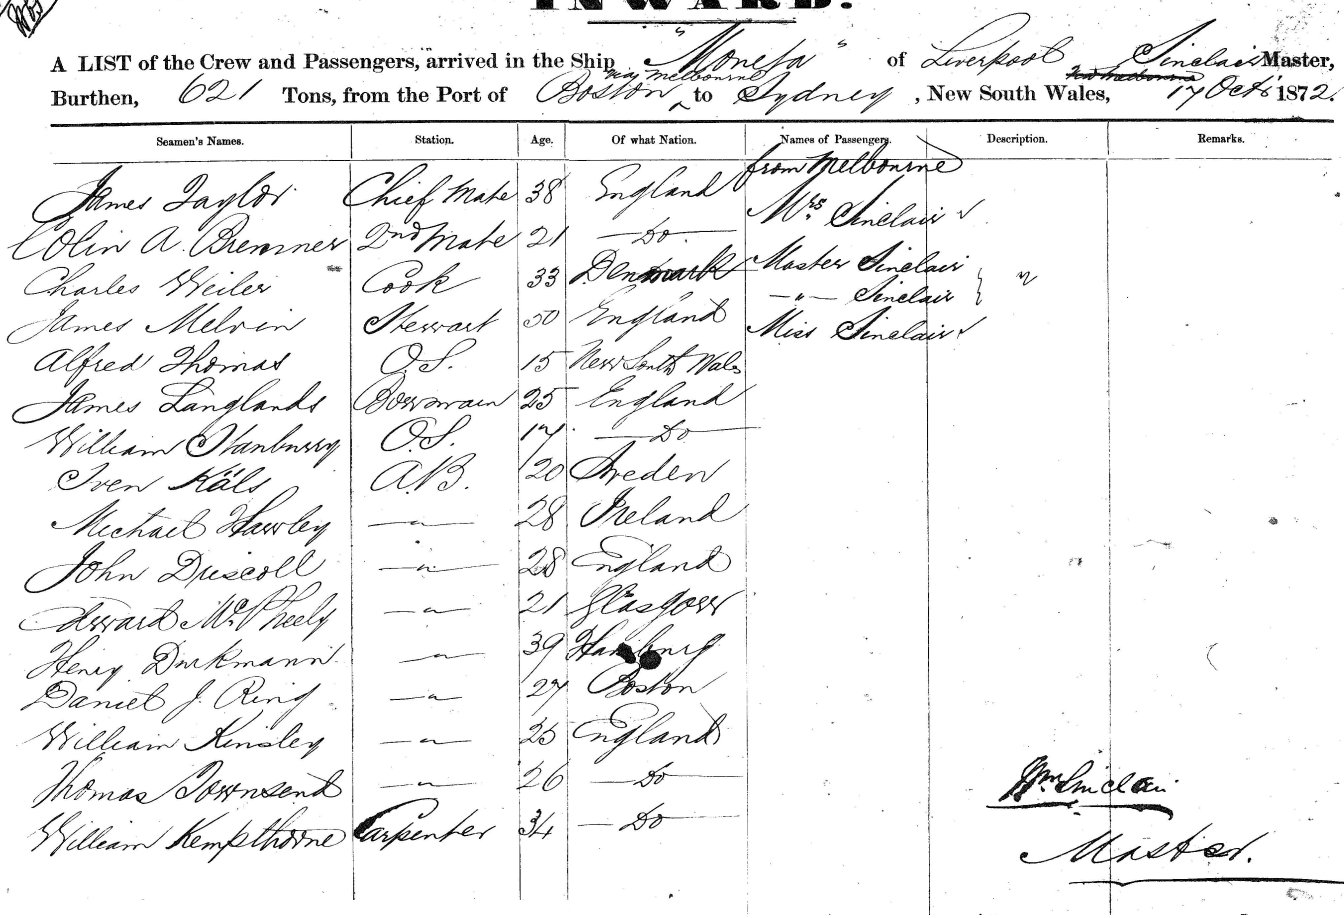 INWARD.
A LIST of the Crew and Passengers, arrived in the Ship "Moneta" of Liverpool Sinclair Master,
via Melbourne
Burthen, 621 Tons, from the Port of Boston to Sydney, New South Wales, 17 Octr 1872.
Seamen's Names. Station. Age. Of what Nation. Names of Passengers. Description. Remarks.
from Melbourne
James Taylor Chief Mate 38 England Mrs Sinclair
Colin A. Bremner 2nd Mate 21 — Do — Master Sinclair
Charles Weiler Cook 33 Denmark — " — Sinclair } "
James Melvin Stewart 50 England Miss Sinclair
Alfred Thomas O.S. 15 New South Wales
James Langlands Boswwain 25 England
William Stanburry O.S. 17 — Do —
Sven Käls A.B. 20 Sweden
Michael Hawley — " — 28 Ireland
John Driscoll — " — 28 England
Edward McPheely — " — 21 Glasgow
Henry Durkmann — " — 39 Hamburg
Daniel J. Ring — " — 27 Boston
William Kinsley — " — 25 England
Thomas Townsend — " — 26 — Do —
William Kempthorne Carpenter 34 — Do —
Wm Sinclair
Master.